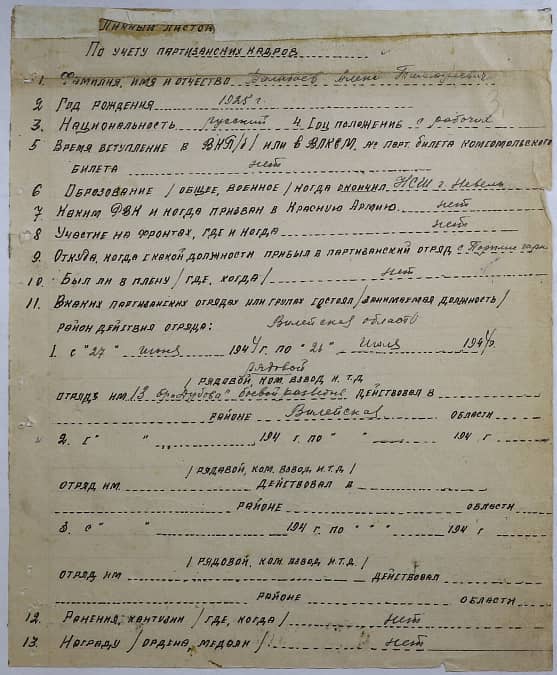 Личный листок
По учету партизанских кадров
1. Фамилия, имя и отчество
2 Год рождения 1925 г.
3. Национальность русский 4 Соц положение с рабочих
5 Время вступление в ВКП/б/ или в ВЛКСМ, № парт билета комсомольского
билета нет
6 Оброзование / общее, военное / когда окончил НСШ г. Невель
7 Каким РВК и когда призван в Красную Армию нет
8 Участие на фронтах, где и когда нет
9. Откуда, когда с какой должности прибыл в партизанский отряд с
10. Был ли в плену / где, когда / нет
11. В каких партизанских отрядах или групах состоял / занимаемая должность /
район действия отряда: Вилейская область
1. с "27" июня 1944 г. по "26" июля 1944 г.
рядовой
/ рядовой, ком. взвод и. т. д
отряде им. 13 боевой разведке действовал в
районе Вилейская области
2. с " " 194 г. по " " 194 г
/ рядавой, ком. взвод. и. т. д /
отряд им. действовал в
районе области
3. с " " 194 г. по " " " 194 г
/ рядавой, ком. взвод. и. т. д /
отряд им действовал
районе области
12. Ранения, кантузии / где, когда / нет
13. Награду / ордена, медали / нет